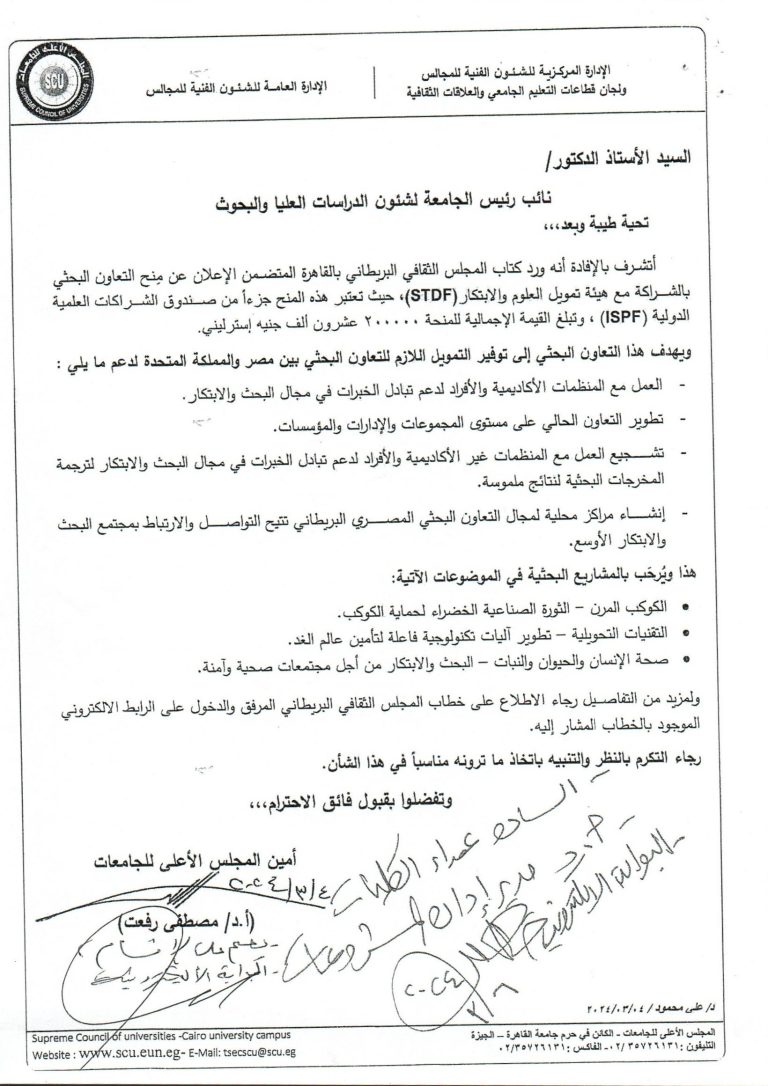 الإدارة المركزية للشئون الفنية للمجالس
ولجان قطاعات التعليم الجامعي والعلاقات الثقافية
الإدارة العامة للشئون الفنية للمجالس
المجلس الأعلى للجامعات
SCU
SUPREME COUNCIL OF UNIVERSITIES
السيد الأستاذ الدكتور/
نائب رئيس الجامعة لشئون الدراسات العليا والبحوث
تحية طيبة وبعد،،،
أتشرف بالإفادة أنه ورد كتاب المجلس الثقافي البريطاني بالقاهرة المتضمن الإعلان عن مِنح التعاون البحثي
بالشراكة مع هيئة تمويل العلوم والابتكار (STDF)، حيث تعتبر هذه المنح جزءاً من صندوق الشراكات العلمية
الدولية (ISPF) ، وتبلغ القيمة الإجمالية للمنحة ٢٠٠٠٠٠ عشرون ألف جنيه إسترليني.
ويهدف هذا التعاون البحثي إلى توفير التمويل اللازم للتعاون البحثي بين مصر والمملكة المتحدة لدعم ما يلي :
- العمل مع المنظمات الأكاديمية والأفراد لدعم تبادل الخبرات في مجال البحث والابتكار.
- تطوير التعاون الحالي على مستوى المجموعات والإدارات والمؤسسات.
- تشجيع العمل مع المنظمات غير الأكاديمية والأفراد لدعم تبادل الخبرات في مجال البحث والابتكار لترجمة
المخرجات البحثية لنتائج ملموسة.
- إنشاء مراكز محلية لمجال التعاون البحثي المصري البريطاني تتيح التواصل والارتباط بمجتمع البحث
والابتكار الأوسع.
هذا ويُرحَب بالمشاريع البحثية في الموضوعات الآتية:
• الكوكب المرن – الثورة الصناعية الخضراء لحماية الكوكب.
• التقنيات التحويلية – تطوير آليات تكنولوجية فاعلة لتأمين عالم الغد.
• صحة الإنسان والحيوان والنبات – البحث والابتكار من أجل مجتمعات صحية وآمنة.
ولمزيد من التفاصيل رجاء الاطلاع على خطاب المجلس الثقافي البريطاني المرفق والدخول على الرابط الالكتروني
الموجود بالخطاب المشار إليه.
رجاء التكرم بالنظر والتنبيه باتخاذ ما ترونه مناسباً في هذا الشأن.
وتفضلوا بقبول فائق الاحترام،،،
- السادة عمداء الكليات
مدير إدارة المشروعات
- البوابة الالكترونية
أمين المجلس الأعلى للجامعات
٢٠٢٤/٣/٤
(أ.د/ مصطفى رفعت)
- البوابة الالكترونية
٢٠٢٤
٣/٦
د/ على محمود / ٢٠٢٤/٠٣/٠٤
المجلس الأعلى للجامعات – الكائن في حرم جامعة القاهرة – الجيزة
التليفون: ٠٢/٣٥٧٢٦١٣١- الفاكس: ٠٢/٣٥٧٢٦١٣١
Supreme Council of universities -Cairo university campus
Website : www.scu.eun.eg- E-Mail: tsecscu@scu.eg